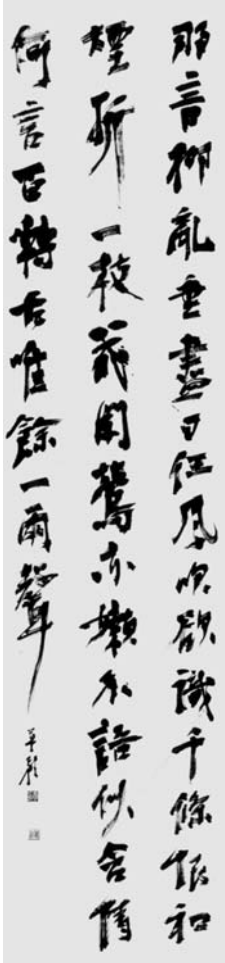 那言柳亂垂盡日任風吹欲識千條恨和
煙折一枝花闌鶯亦懶不語似含情
何言百轉舌唯餘一兩聲